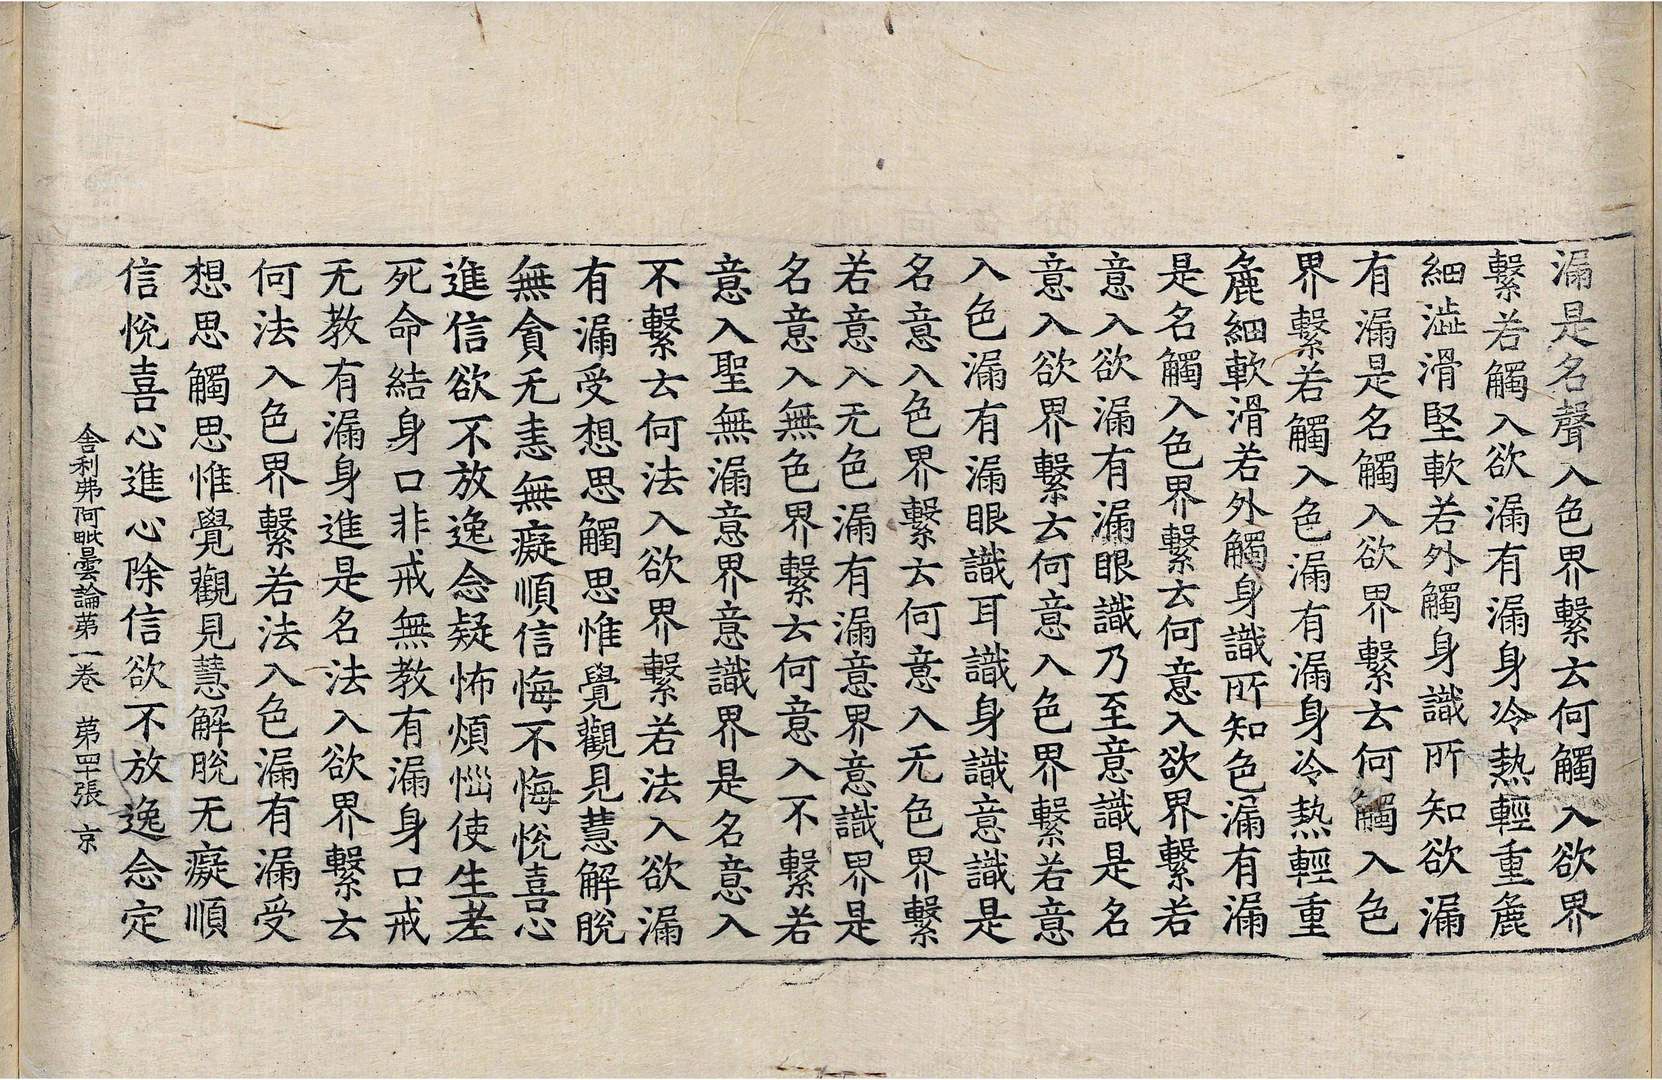 漏是名聲入色界繫云何觸入欲界
繫若觸入欲漏有漏身冷熱輕重麁
細澁滑堅軟若外觸身識所知欲漏
有漏是名觸入欲界繫云何觸入色
界繫若觸入色漏有漏身冷熱輕重
麁細軟滑若外觸身識所知色漏有漏
是名觸入色界繫云何意入欲界繫若
意入欲漏有漏眼識乃至意識是名
意入欲界繫云何意入色界繫若意
入色漏有漏眼識耳識身識意識是
名意入色界繫云何意入无色界繫
若意入无色漏有漏意界意識界是
名意入無色界繫云何意入不繫若
意入聖無漏意界意識界是名意入
不繫云何法入欲界繫若法入欲漏
有漏受想思觸思惟覺觀見慧解脫
無貪无恚無癡順信悔不悔悅喜心
進信欲不放逸念疑怖煩惱使生老
死命結身口非戒無教有漏身口戒
无教有漏身進是名法入欲界繫云
何法入色界繫若法入色漏有漏受
想思觸思惟覺觀見慧解脫无癡順
信悅喜心進心除信欲不放逸念定
舍利弗阿毗曇論第一卷 第四十張 京